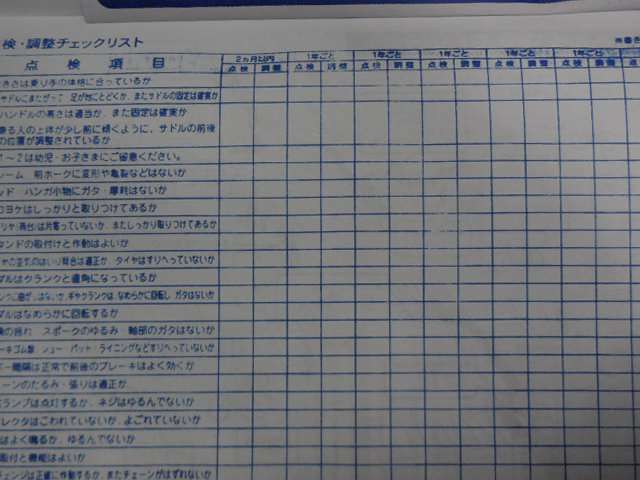 検・調整チェックリスト
点 検 項 目
2ヵ月以内 1年ごと 1年ごと 1年ごと 1年ごと 1年ごと
点検 調整 点検 点検 調整 点検 調整 点検 調整 点検 調整
きさは乗り手の体格に合っているか
サドルにまたがって 足が地にとどくか、またサドルの固定は確実か
ハンドルの高さは適当か、また固定は確実か
乗る人の上体が少し前に傾くように、サドルの前後
の位置が調整されているか
1～2は幼児・お子さまにご留意ください。
レーム 前ホークに変形や亀裂などはないか
ッド ハンガ小物にガタ・摩耗はないか
ロヨケはしっかりと取りつけてあるか
リヤ(荷台)は片寄っていないか、またしっかり取りつけてあるか
タンドの取付けと作動はよいか
タイヤはすりへっていないか
ダルはクランクと直角になっているか
ギヤクランクは、なめらかに回転し ガタはないか
ダルはなめらかに回転するか
スポークのゆるみ 軸部のガタはないか
ーキゴム部、シュー・パット・ライニングなどすりへっていないか
間隔は正常で前後のブレーキはよく効くか
ェーンのたるみ・張りは適正か
ランプは点灯するか、ネジはゆるんでないか
レクタはこわれていないか、よごれていないか
はよく鳴るか、ゆるんでないか
取付と機能はよいか
チェンジは正確に作動するか、またチェーンがはずれないか